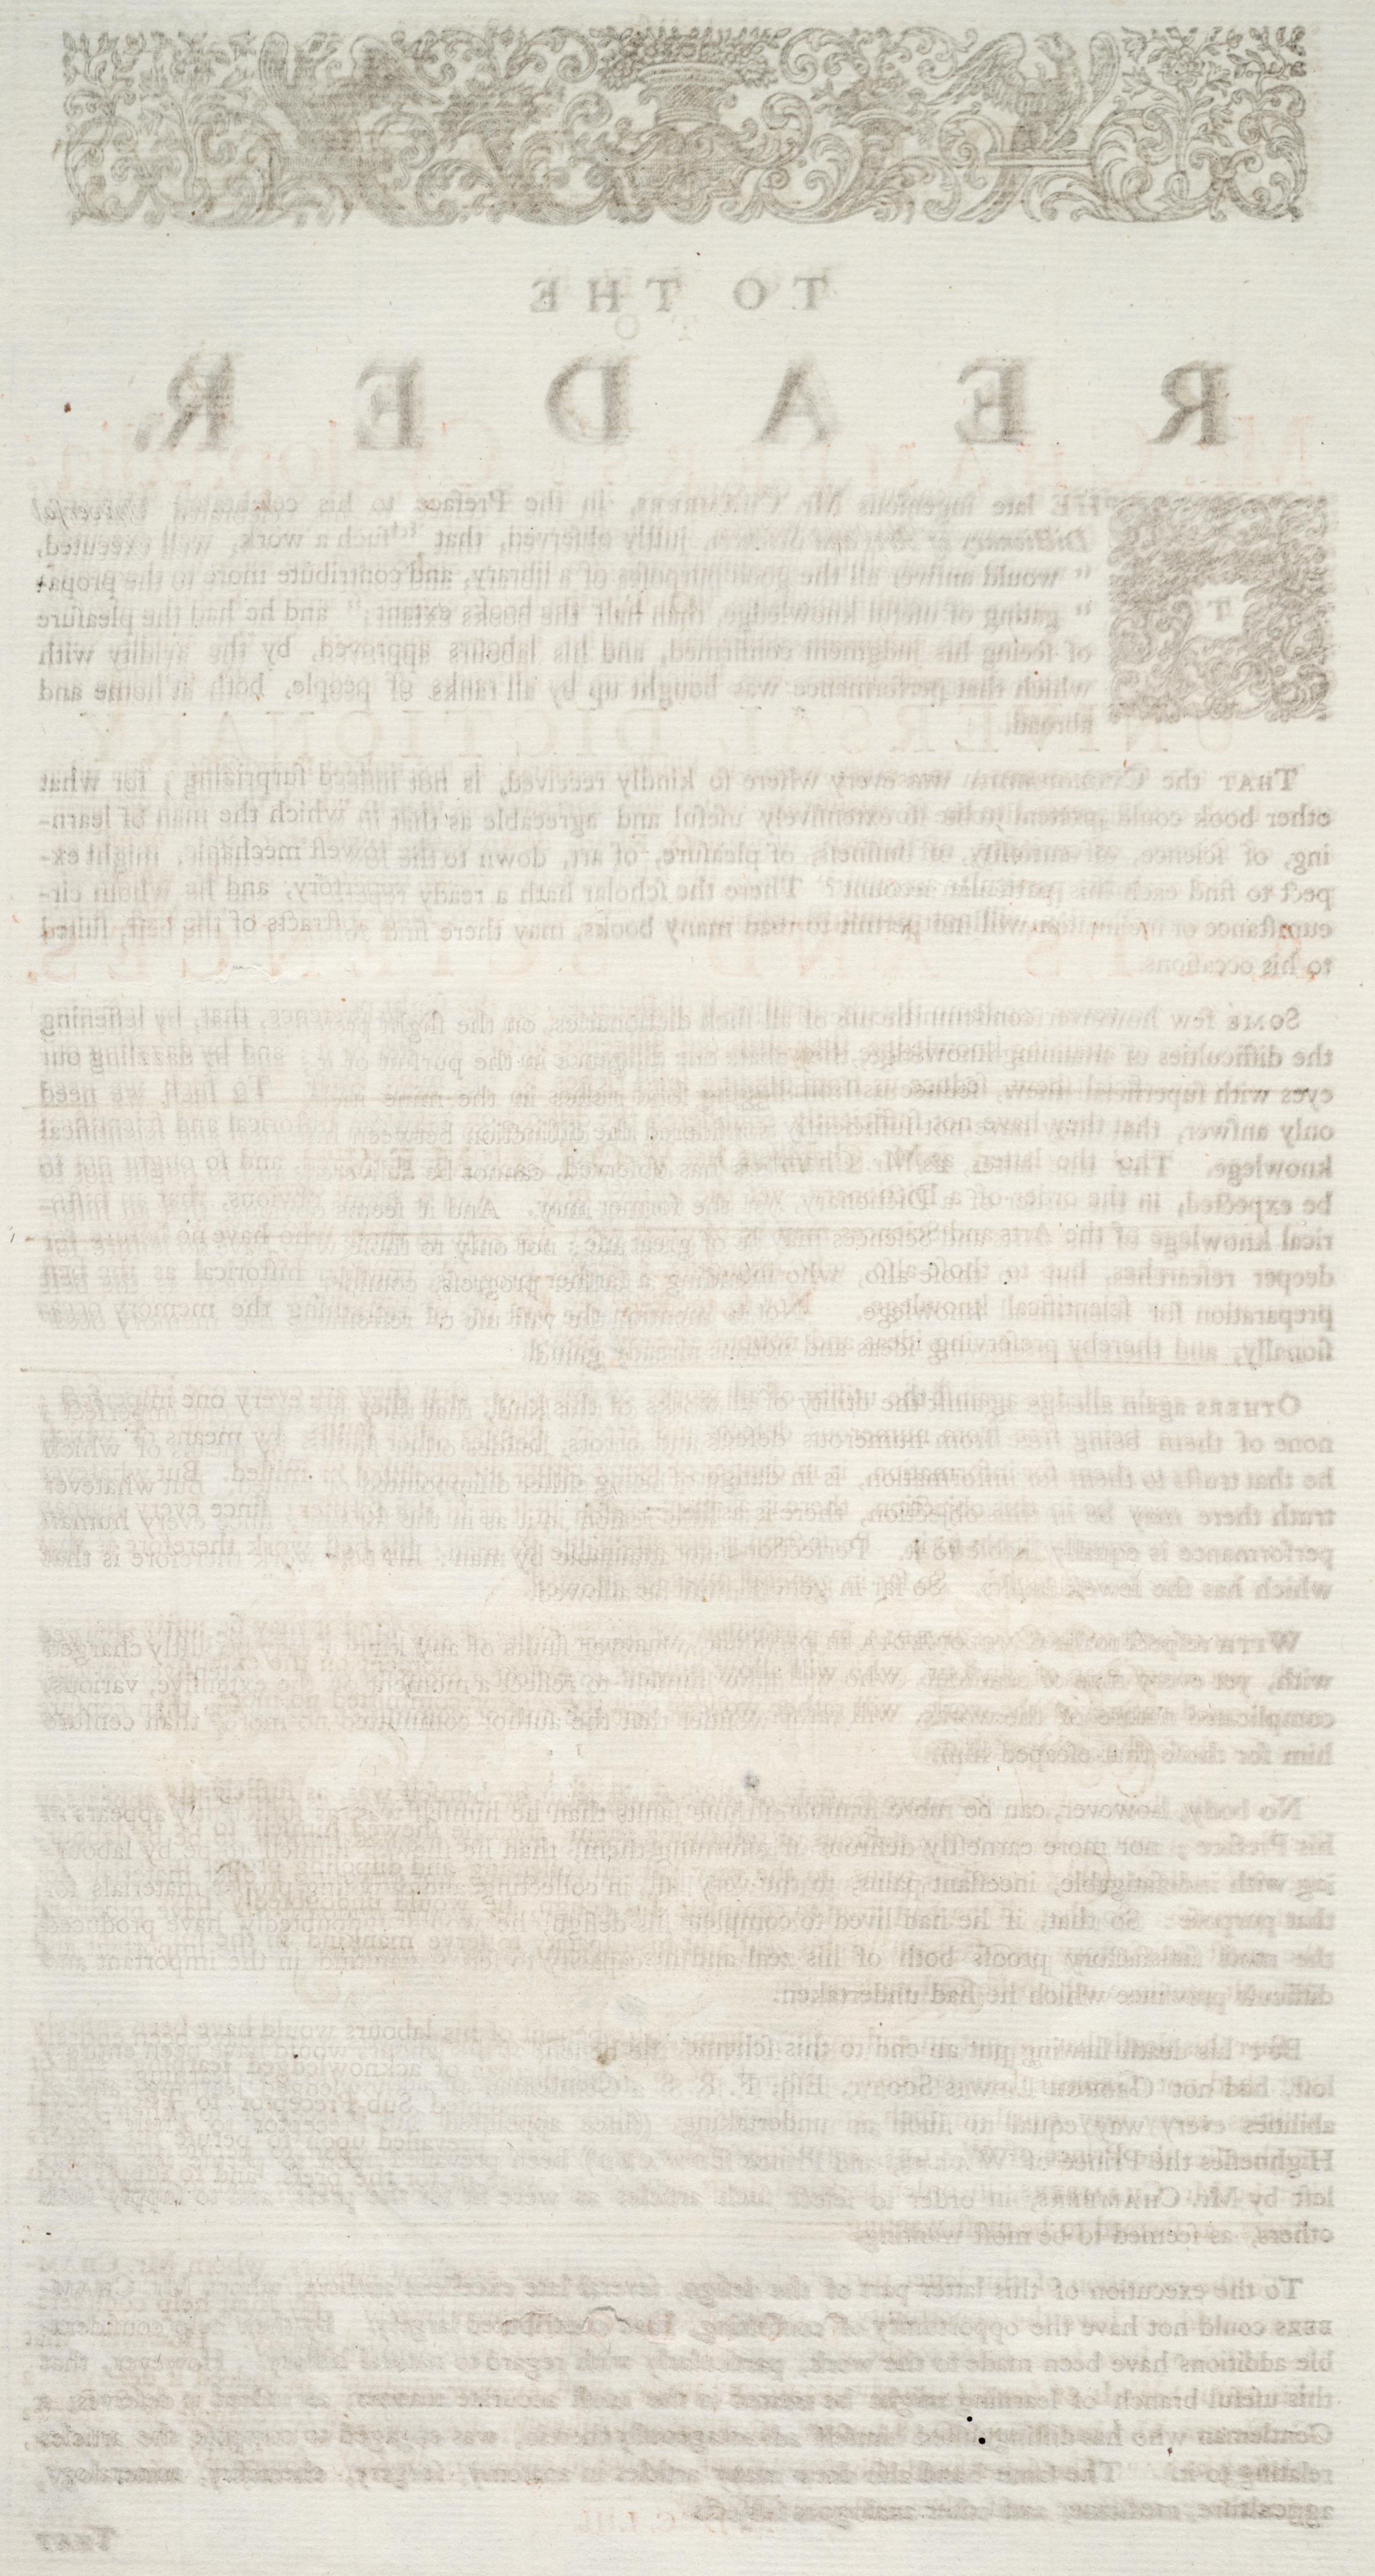 TO THE
READER.
THE late ingenious Mr. CHAMBERS, in the Preface to his celebrated Universal
Dictionary of Arts and Sciences, justly observed, that "such a work, well executed,
" would answer all the good purposes of a library, and contribute more to the propa-
" gating of useful knowledge, than half the books extant;" and he had the pleasure
of seeing his judgment confirmed, and his labours approved, by the avidity with
which that performance was bought up by all ranks of people, both at home and
abroad.
THAT the was every where so kindly received, is not indeed surprizing; for what
other book could pretend to be so extensively useful and agreeable as that in which the man of learn-
ing, of science, of curiosity, of business, of pleasure, of art, down to the lowest mechanic, might ex-
pect to find each his particular account? There the scholar hath a ready repertory; and he whom cir-
cumstance or will not permit to read many books, may there find abstracts of the best, suited
to his occasions.
SOME few however contemn the use of all such dictionaries, on the slight pretence, that, by lessening
the difficulties of attaining knowledge, they abate our diligence in the pursuit of it; and by dazzling our
eyes with superficial shew, seduce us from digging solid riches in the mine itself. To such we need
only answer, that they have not sufficiently considered the distinction between historical and scientifical
knowlege. Tho' the latter, as Mr. Chambers has observed, cannot be delivered, and so ought not to
be expected, in the order of a Dictionary, yet the former may. And it seems obvious, that an histo-
rical knowlege of the Arts and Sciences may be of great use; not only to those who have no leisure for
deeper researches, but to those also, who intending a farther progress, consider historical as the best
preparation for scientifical knowlege. Not to mention the vast use of refreshing the memory occa-
sionally, and thereby preserving ideas and notions already gained.
OTHERS again alledge against the utility of all works of this kind, that they are every one imperfect;
none of them being free from numerous defects and errors, besides other faults, by means of which
he that trusts to them for information, is in danger of being either disappointed or misled. But whatever
truth there may be in this objection, there is as little reason in it as in the former; since every human
performance is equally liable to it. Perfection is not attainable by man: his best work therefore is that
which has the fewest faults. So far in general must be allowed.
WITH respect to the CYCLOPÆDIA in particular, whatever faults of any kind it may be justly charged
with, yet every man of candour, who will allow himself to reflect a moment on the extensive, various,
complicated nature of the work, will rather wonder that the author committed no more, than censure
him for those that escaped him.
No body, however, can be more sensible of his faults than he himself was, as sufficiently appears in
his Preface; nor more earnestly desirous of reforming them, than he shewed himself to be by labour-
ing with indefatigable, incessant pains, to the very last, in collecting and disposing proper materials for
that purpose. So that, if he had lived to complete his design, he would undoubtedly have produced
the most satisfactory proofs both of his zeal and his capacity to serve mankind in the important and
difficult province which he had undertaken.
BUT his death having put an end to this scheme, the benefit of his labours would have been entirely
left, had not GEORGE LEWIS SCOTT, Esq; F. R. S. a Gentleman of acknowledged learning, and of
abilities every way equal to such an undertaking, (since appointed Sub-Preceptor to their Royal
Highnesses the Prince of WALES, and Prince EDWARD) been prevailed upon to peruse the papers
left by Mr. CHAMBERS, in order to select such articles as were fit for the press, and to supply such
others, as seemed to be most wanting.
To the execution of this latter part of the design, several late excellent authors, whom Mr. CHAM-
BERS could not have the opportunity of consulting, have contributed largely. By their help considera-
ble additions have been made to the work, particularly with regard to natural history. However, that
this useful branch of learning might be treated in the most accurate manner, as indeed it deserves, a
Gentleman who has distinguished himself advantageously therein, was engaged to complete the articles
relating to it. The same hand also drew many articles in anatomy, surgery, chemistry, mineralogy,
agriculture, medicine, and other
THAT